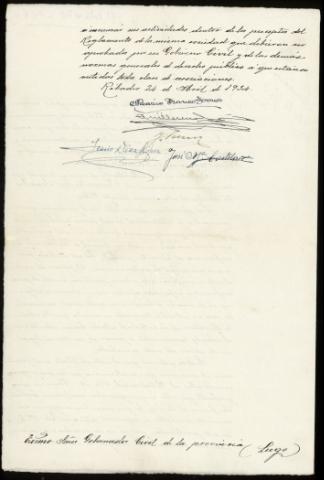 sus actividades dentro de los preceptos del
Reglamento de la misma sociedad que debieran ser
aprobado por su Gobierno Civil y de las demás
normas generales de derecho público a que están
toda clase de asociaciones.
Ribadeo 24 de Abril de 1934.
Jesús
José
Excmo Señor Gobernador Civil de la provincia (Lugo)